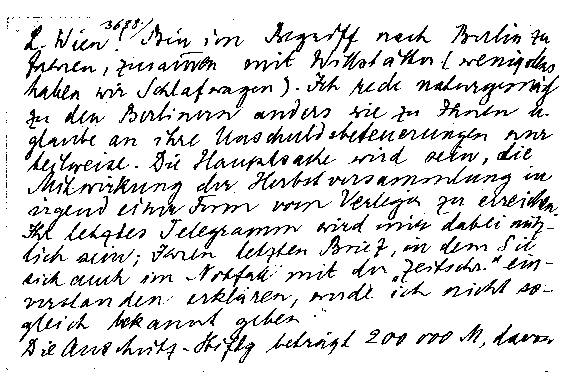 L. Wien! 3688/
Bin im Begriff nach Berlin zu
fahren, zusammen mit Willstätter (wenigstens
haben wir Schlafwagen). Ich rede naturgemäß
zu den Berlinern anders wie zu Ihnen u.
glaube an ihre Unschuldsbeteuerungen nur
teilweise. Die Hauptsache wird sein, die
Mitwirkung der Herbstversammlung in
irgend einer Form vom Verleger zu erreichen.
Ihr letztes Telegramm wird mir dabei nütz-
lich sein; Ihren letzten Brief, in dem Sie
sich auch im Notfall mit der „Zeitschr." ein-
verstanden erklären, werde ich nicht so-
gleich bekannt geben.
Die Anschütz-Stiftg beträgt 200 000 M, davon